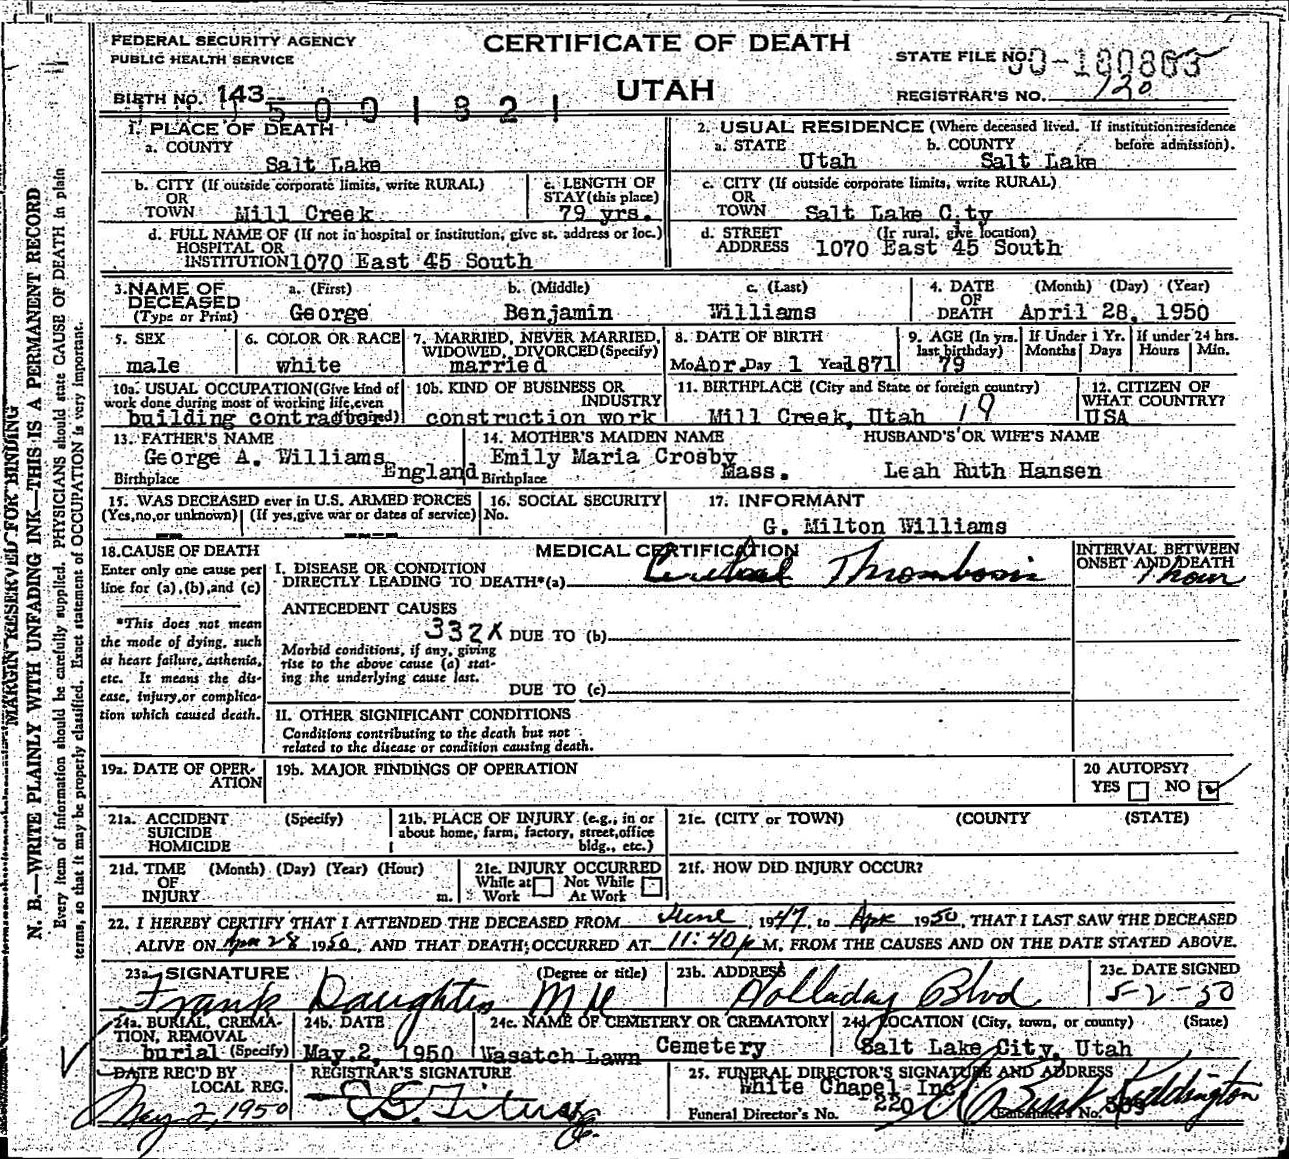 FEDERAL SECURITY AGENCY
PUBLIC HEALTH SERVICE
CERTIFICATE OF DEATH
UTAH
STATE FILE NO.
REGISTRAR'S NO. 120
BIRTH NO. 143
1. PLACE OF DEATH
a. COUNTY
Salt Lake
2. USUAL RESIDENCE (Where deceased lived. If institution:residence before admission).
a. STATE Utah b. COUNTY Salt Lake
b. CITY (If outside corporate limits, write RURAL)
OR
TOWN Mill Creek
c. LENGTH OF
STAY (this place)
79 yrs.
c. CITY (If outside corporate limits, write RURAL)
OR
TOWN Salt Lake City
d. FULL NAME OF (If not in hospital or institution, give st. address or loc.)
HOSPITAL OR
INSTITUTION 1070 East 45 South
d. STREET (If rural, give location)
ADDRESS 1070 East 45 South
3. NAME OF
DECEASED
(Type or Print)
a. (First) b. (Middle) c. (Last)
George Benjamin Williams
4. DATE (Month) (Day) (Year)
OF
DEATH April 28, 1950
5. SEX
male
6. COLOR OR RACE
white
7. MARRIED, NEVER MARRIED,
WIDOWED, DIVORCED (Specify)
married
8. DATE OF BIRTH
Mo Apr. Day 1 Year 1871
9. AGE (In yrs. last birthday)
79
If Under 1 Yr.
Months Days
If under 24 hrs.
Hours Min.
10a. USUAL OCCUPATION (Give kind of
work done during most of working life, even
building contractor
10b. KIND OF BUSINESS OR
INDUSTRY
construction work
11. BIRTHPLACE (City and State or foreign country)
Mill Creek, Utah 19
12. CITIZEN OF
WHAT COUNTRY?
USA
13. FATHER'S NAME
George A. Williams
Birthplace England
14. MOTHER'S MAIDEN NAME
Emily Maria Crosby
Birthplace Mass.
HUSBAND'S OR WIFE'S NAME
Leah Ruth Hansen
15. WAS DECEASED ever in U.S. ARMED FORCES
(Yes, no, or unknown) (If yes, give war or dates of service)
-- ----
16. SOCIAL SECURITY
No.
17. INFORMANT
G. Milton Williams
18. CAUSE OF DEATH
Enter only one cause per
line for (a), (b), and (c)
*This does not mean
the mode of dying, such
as heart failure, asthenia,
etc. It means the dis-
ease, injury, or complica-
tion which caused death.
MEDICAL CERTIFICATION
I. DISEASE OR CONDITION
DIRECTLY LEADING TO DEATH*(a) Cerebral Thrombosis
INTERVAL BETWEEN
ONSET AND DEATH
1 hour
ANTECEDENT CAUSES
332X DUE TO (b)
Morbid conditions, if any, giving
rise to the above cause (a) stat-
ing the underlying cause last.
DUE TO (c)
II. OTHER SIGNIFICANT CONDITIONS
Conditions contributing to the death but not
related to the disease or condition causing death.
19a. DATE OF OPER-
ATION
19b. MAJOR FINDINGS OF OPERATION
20 AUTOPSY?
YES NO
21a. ACCIDENT (Specify)
SUICIDE
HOMICIDE
21b. PLACE OF INJURY (e.g., in or
about home, farm, factory, street, office
bldg., etc.)
21c. (CITY or TOWN) (COUNTY) (STATE)
21d. TIME (Month) (Day) (Year) (Hour)
OF
INJURY m.
21e. INJURY OCCURRED
While at Work Not While At Work
21f. HOW DID INJURY OCCUR?
22. I HEREBY CERTIFY THAT I ATTENDED THE DECEASED FROM June, 1947, to Apr 1950, THAT I LAST SAW THE DECEASED
ALIVE ON Apr 28 1950, AND THAT DEATH OCCURRED AT 11:40 p M, FROM THE CAUSES AND ON THE DATE STATED ABOVE.
23a. SIGNATURE (Degree or title)
Frank Daughters MD
23b. ADDRESS
Holladay Blvd
23c. DATE SIGNED
5-2-50
24a. BURIAL, CREMA-
TION, REMOVAL
burial (Specify)
24b. DATE
May 2, 1950
24c. NAME OF CEMETERY OR CREMATORY
Wasatch Lawn Cemetery
24d. LOCATION (City, town, or county) (State)
Salt Lake City, Utah
DATE REC'D BY
LOCAL REG.
May 2, 1950
REGISTRAR'S SIGNATURE
25. FUNERAL DIRECTOR'S SIGNATURE AND ADDRESS
White Chapel Inc
Funeral Director's No. 220
Embalmer's No.
MARGIN RESERVED FOR BINDING
N. B.—WRITE PLAINLY WITH UNFADING INK—THIS IS A PERMANENT RECORD
Every item of information should be carefully supplied. PHYSICIANS should state CAUSE OF DEATH in plain
terms, so that it may be properly classified. Exact statement of OCCUPATION is very important.